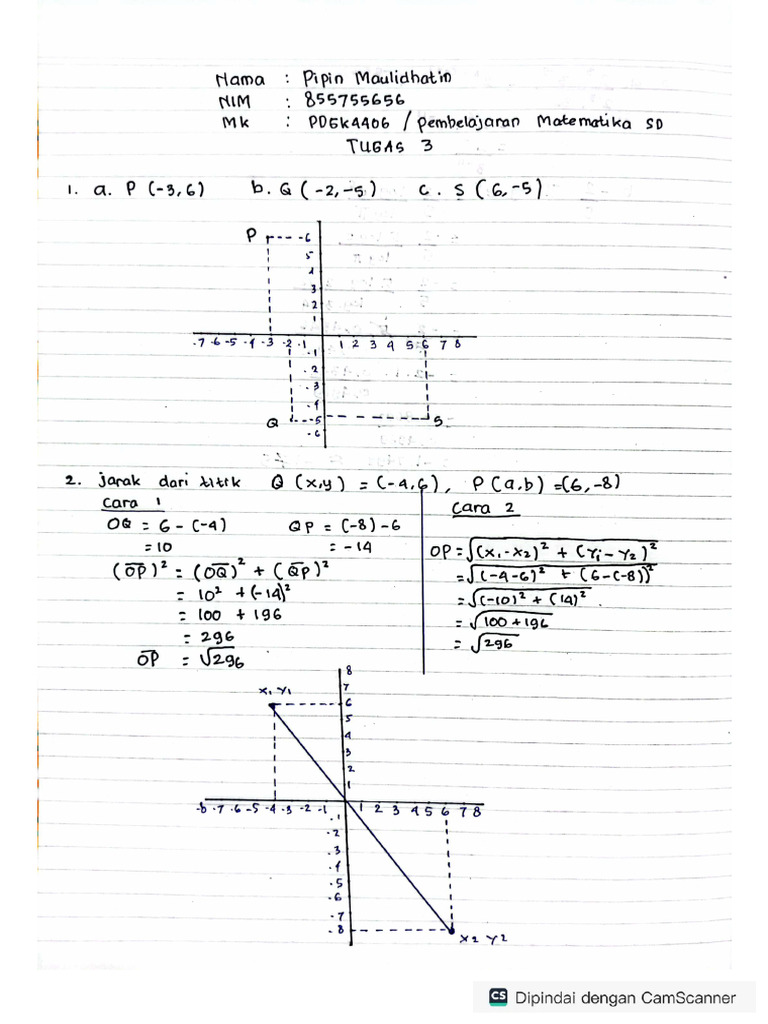 Nama : Pipin Maulidhatin
NIM : 855755656
Mk : PDGK4406 / Pembelajaran Matematika SD
TUGAS 3
1. a. P (-3,6) b. Q (-2,-5) c. S (6,-5)
P
-6
5
4
3
2
1
-7 -6 -5 -4 -3 -2 -1 1 2 3 4 5 6 7 8
-1
-2
-3
-4
Q -5 S
-6
2. jarak dari titik Q (x,y) = (-4,6), P (a,b) = (6,-8)
Cara 1
OQ = 6 - (-4) QP = (-8) - 6
= 10 = -14
(OP)² = (OQ)² + (QP)²
= 10² + (-14)²
= 100 + 196
= 296
OP = √296
Cara 2
OP = √(x₁-x₂)² + (y₁-y₂)²
= √(-4-6)² + (6-(-8))²
= √(-10)² + (14)²
= √100+196
= √296
8
7
x₁ y₁
6
5
4
3
2
1
-8 -7 -6 -5 -4 -3 -2 -1 1 2 3 4 5 6 7 8
-1
-2
-3
-4
-5
-6
-7
-8
x2 y2
CS Dipindai dengan CamScanner